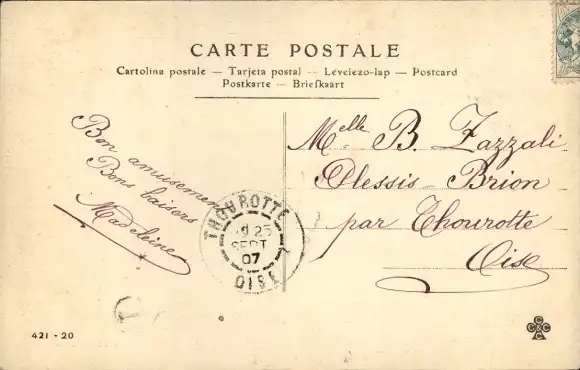 CARTE POSTALE
Cartolina postale — Tarjeta postal — Levelezo-lap — Postcard
Postkarte — Briefkaart
Bon amusement
Bons baisers
Madeleine
Melle B. Zazzali
Plessis-Brion
par Thourotte
Oise
THOUROTTE
25
SEPT
07
OISE
421 - 20
C C C C